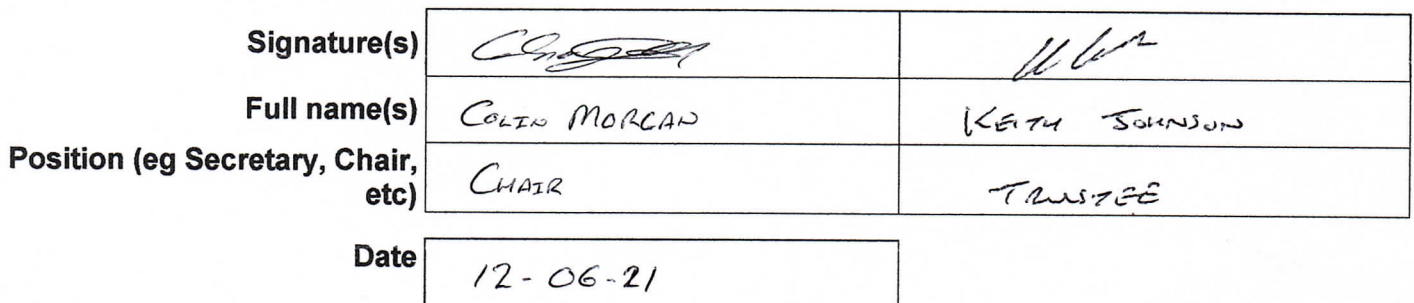 Signature(s)
Full name(s) COLIN MORGAN KEITH JOHNSON
Position (eg Secretary, Chair,
etc) CHAIR TRUSTEE
Date 12-06-21